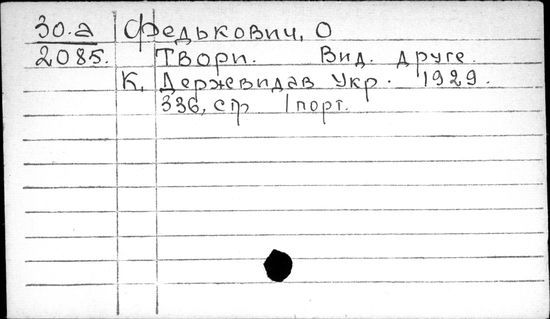 30.а Федькович, О
2085. Твори. Вид. друге.
К, Державидав Укр. 1929.
336, стр 1 порт.